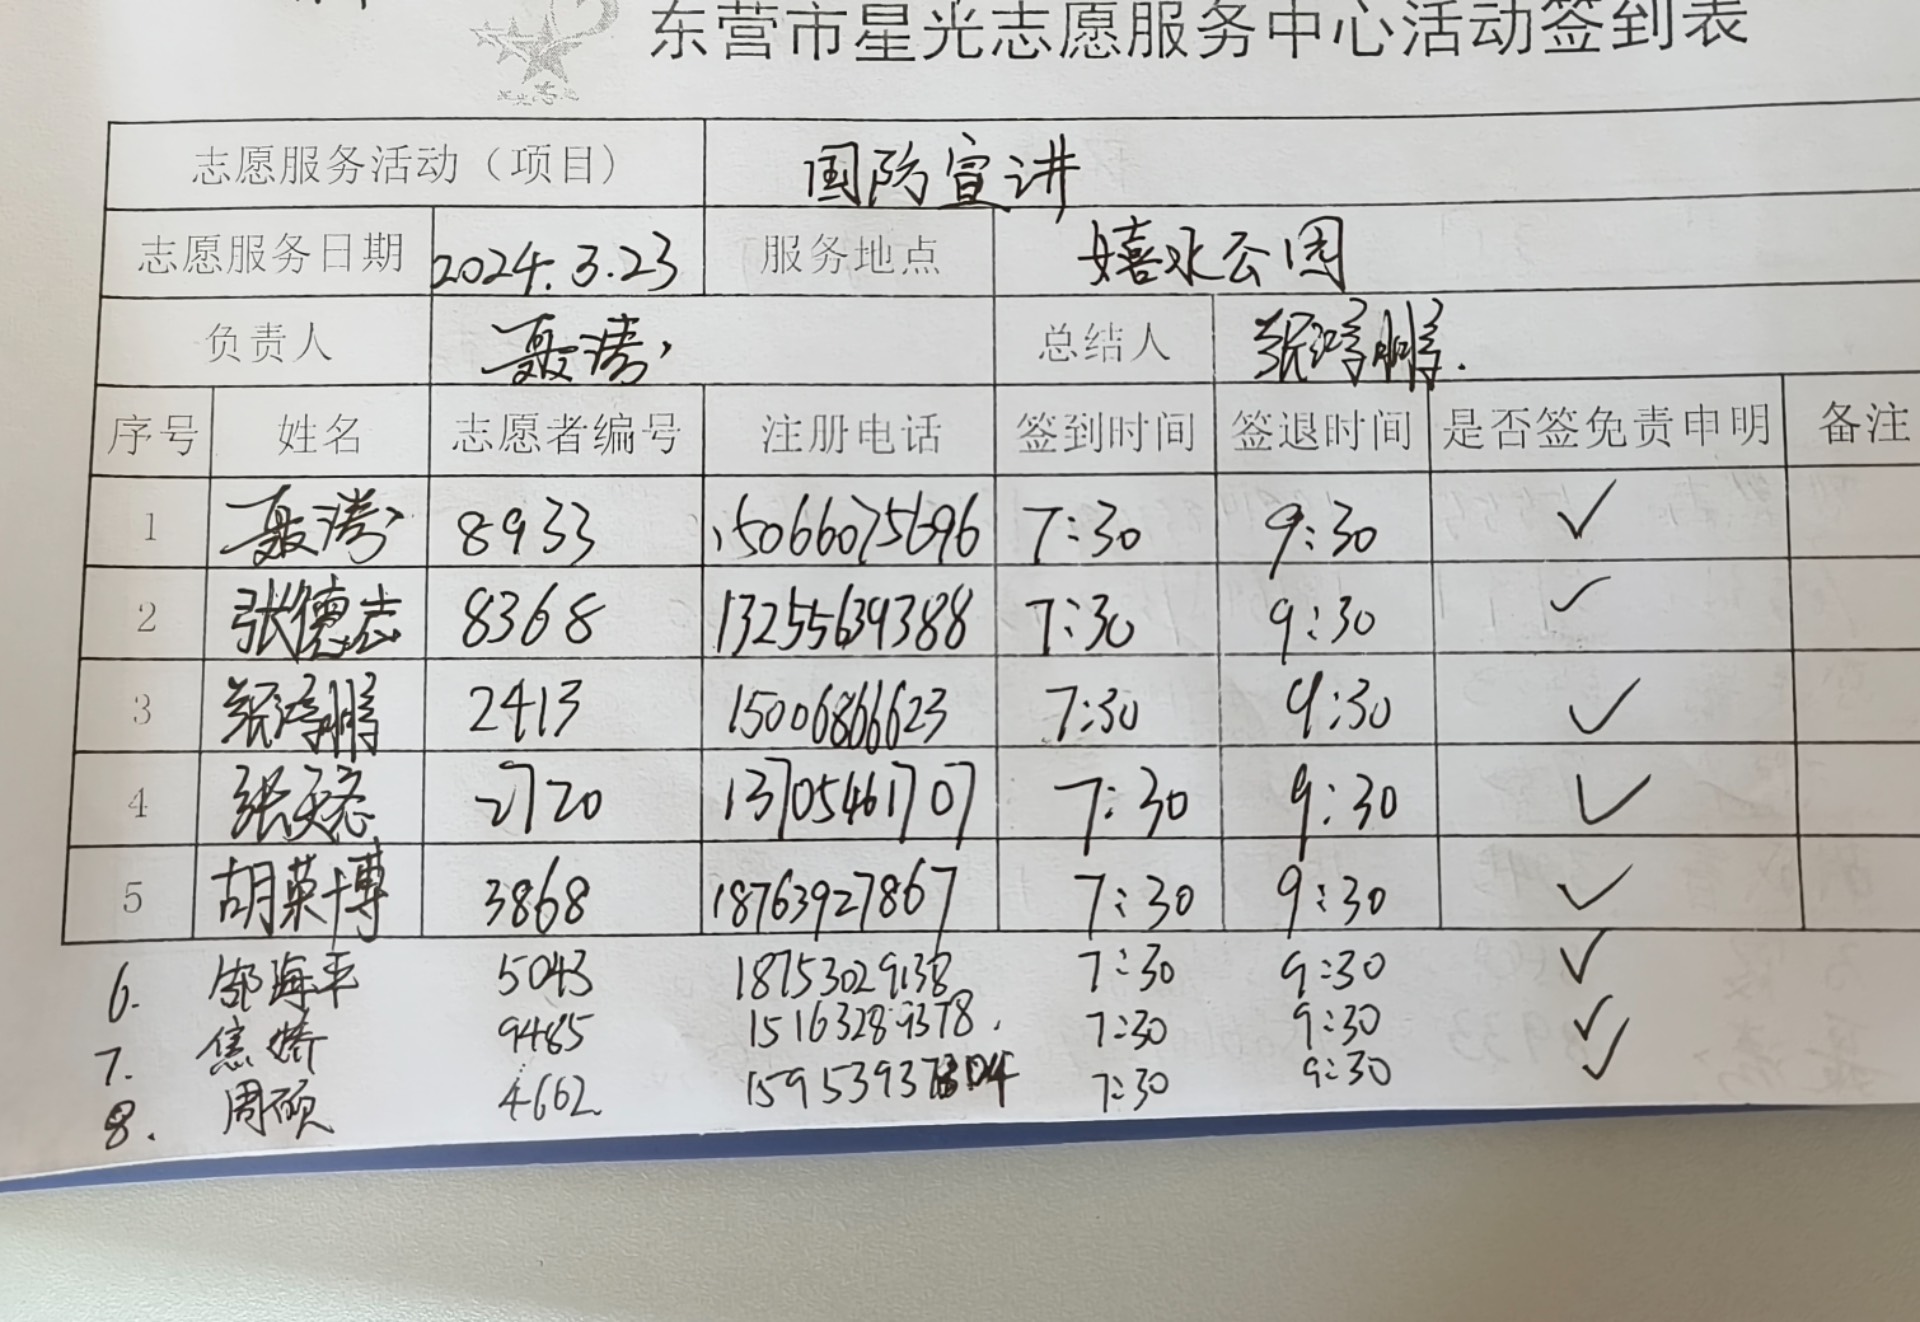 东营市星光志愿服务中心活动签到表
志愿服务活动（项目） 国防宣讲
志愿服务日期 2024.3.23 服务地点 嬉水公园
负责人 聂涛 总结人
序号 姓名 志愿者编号 注册电话 签到时间 签退时间 是否签免责申明 备注
1 聂涛 8933 15066075696 7:30 9:30 ✓
2 张德志 8368 13255639388 7:30 9:30 ✓
3 2413 15006866623 7:30 9:30 ✓
4 2720 13705461707 7:30 9:30 ✓
5 胡荣博 3868 18763927867 7:30 9:30 ✓
6. 海平 5043 18753029138 7:30 9:30 ✓
7. 焦娇 9485 15163289378. 7:30 9:30 ✓
8. 周硕 4662 7:30 9:30 ✓